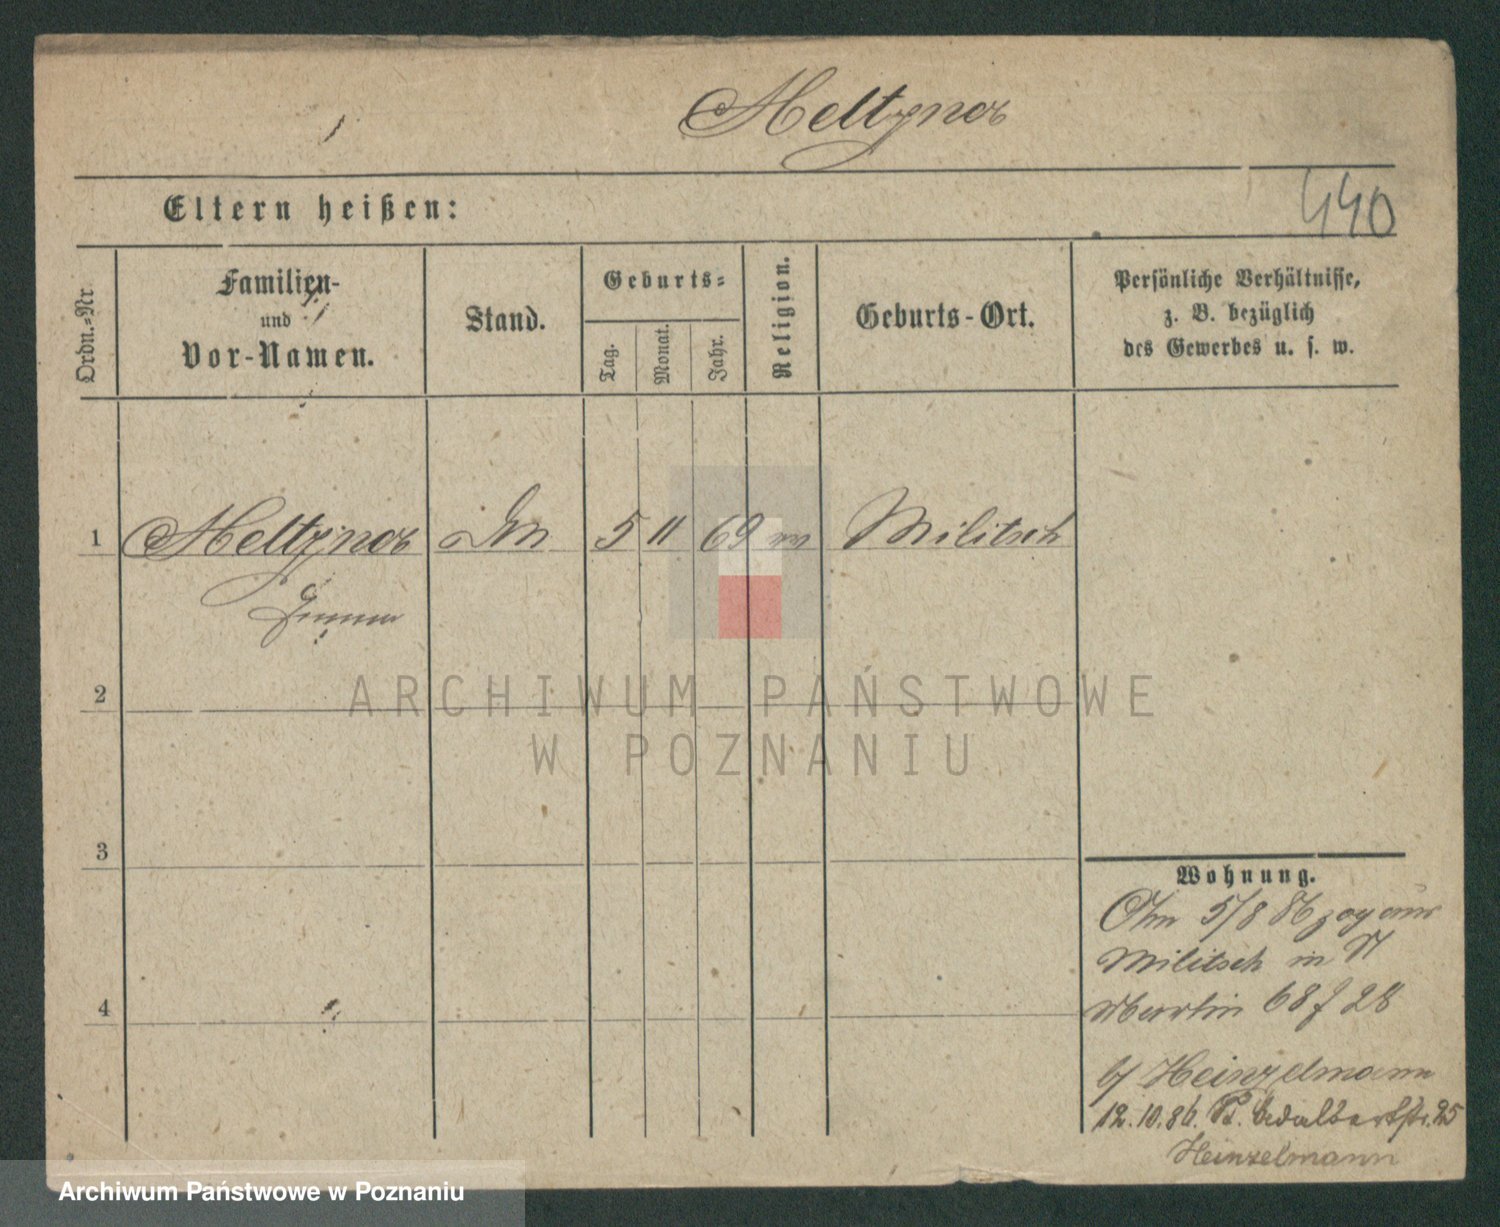 Meltzner
440
Eltern heißen:
Ordn.-Nr
Familien-
und
Vor-Namen.
Stand.
Geburts-
Tag.
Monat.
Jahr.
Religion.
Geburts-Ort.
Persönliche Verhältnisse,
z. B. bezüglich
des Gewerbes u. s. w.
1 Meltzner 5 11 69 Militsch
2
3
4
Wohnung.
5/8 86 zog aus
Militsch in St
Martin 68 f 28
b/ Heinzelmann
12.10.86. St. Adalbertstr. 25
Heinzelmann
ARCHIWUM PAŃSTWOWE
W POZNANIU
Archiwum Państwowe w Poznaniu